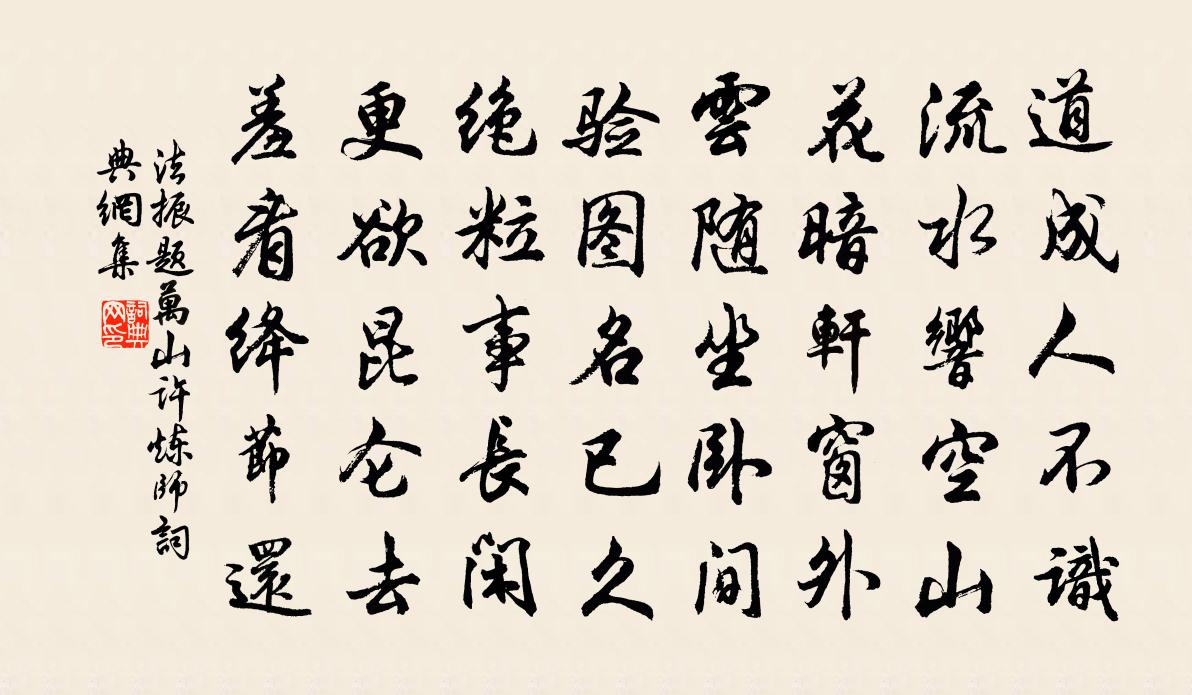 道成人不識
流水響空山
花暗軒窗外
雲随坐卧间
验图名已久
绝粒事長闲
更欲昆仑去
羞看绛節還
法振题萬山许炼師詞
典網集
詞典
网印